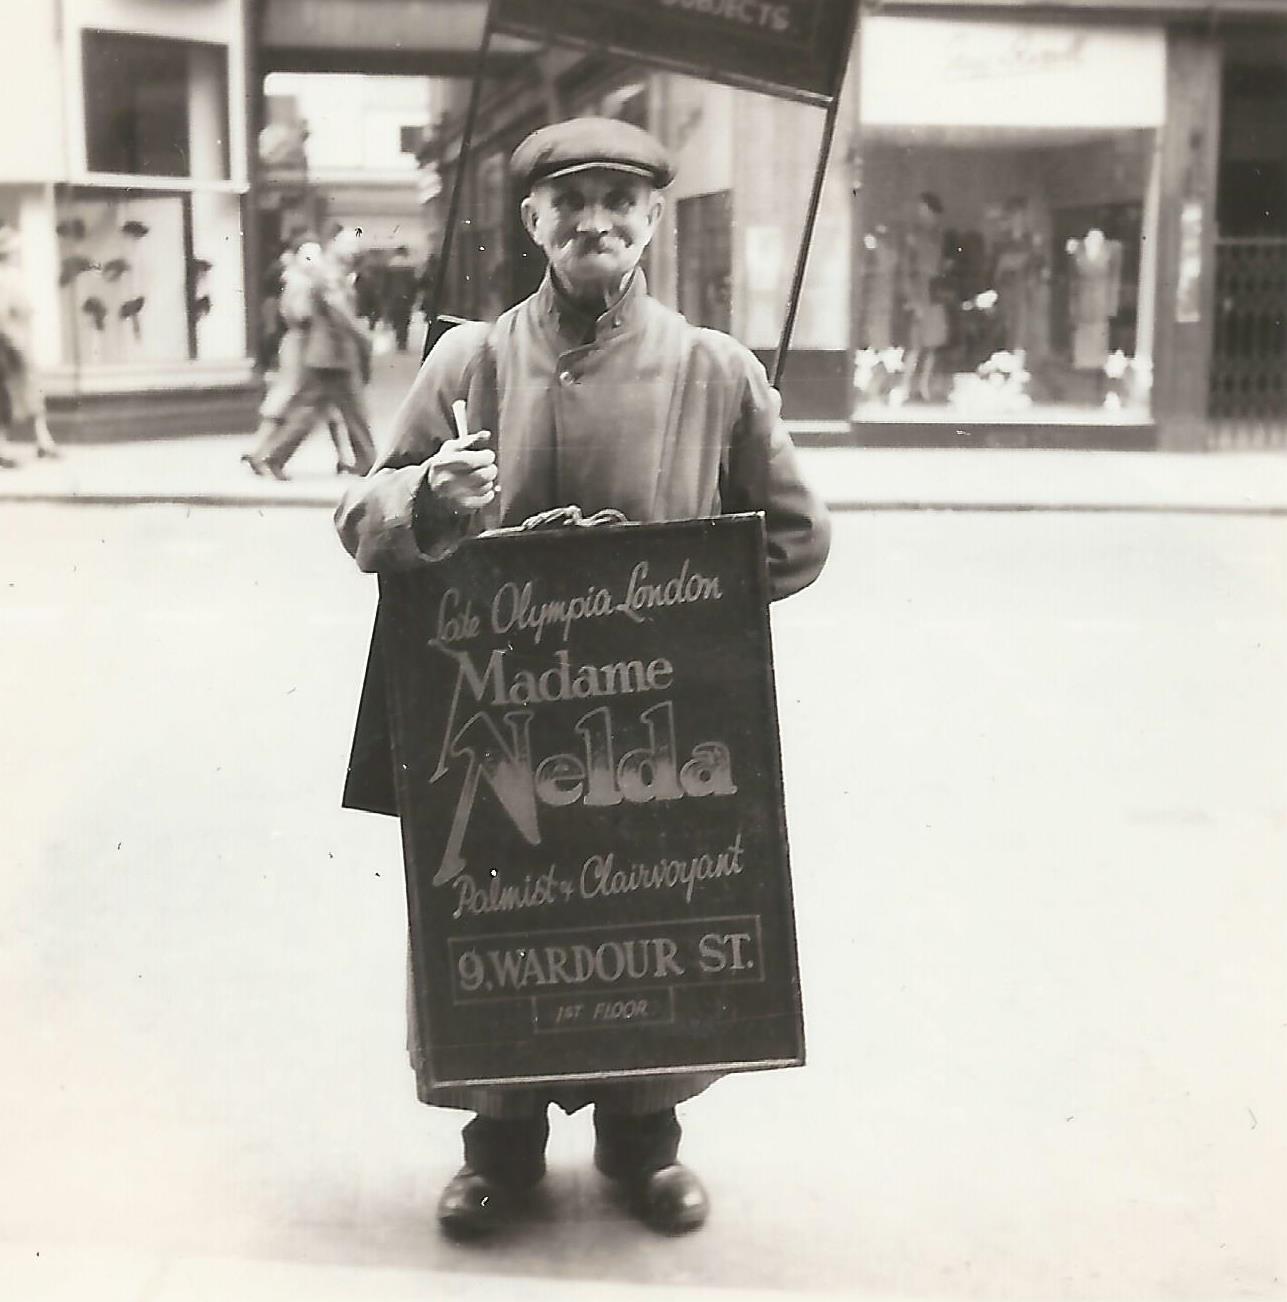 SUBJECTS.
Late Olympia London
Madame
Nelda
Palmist & Clairvoyant
9, WARDOUR ST.
1ST FLOOR